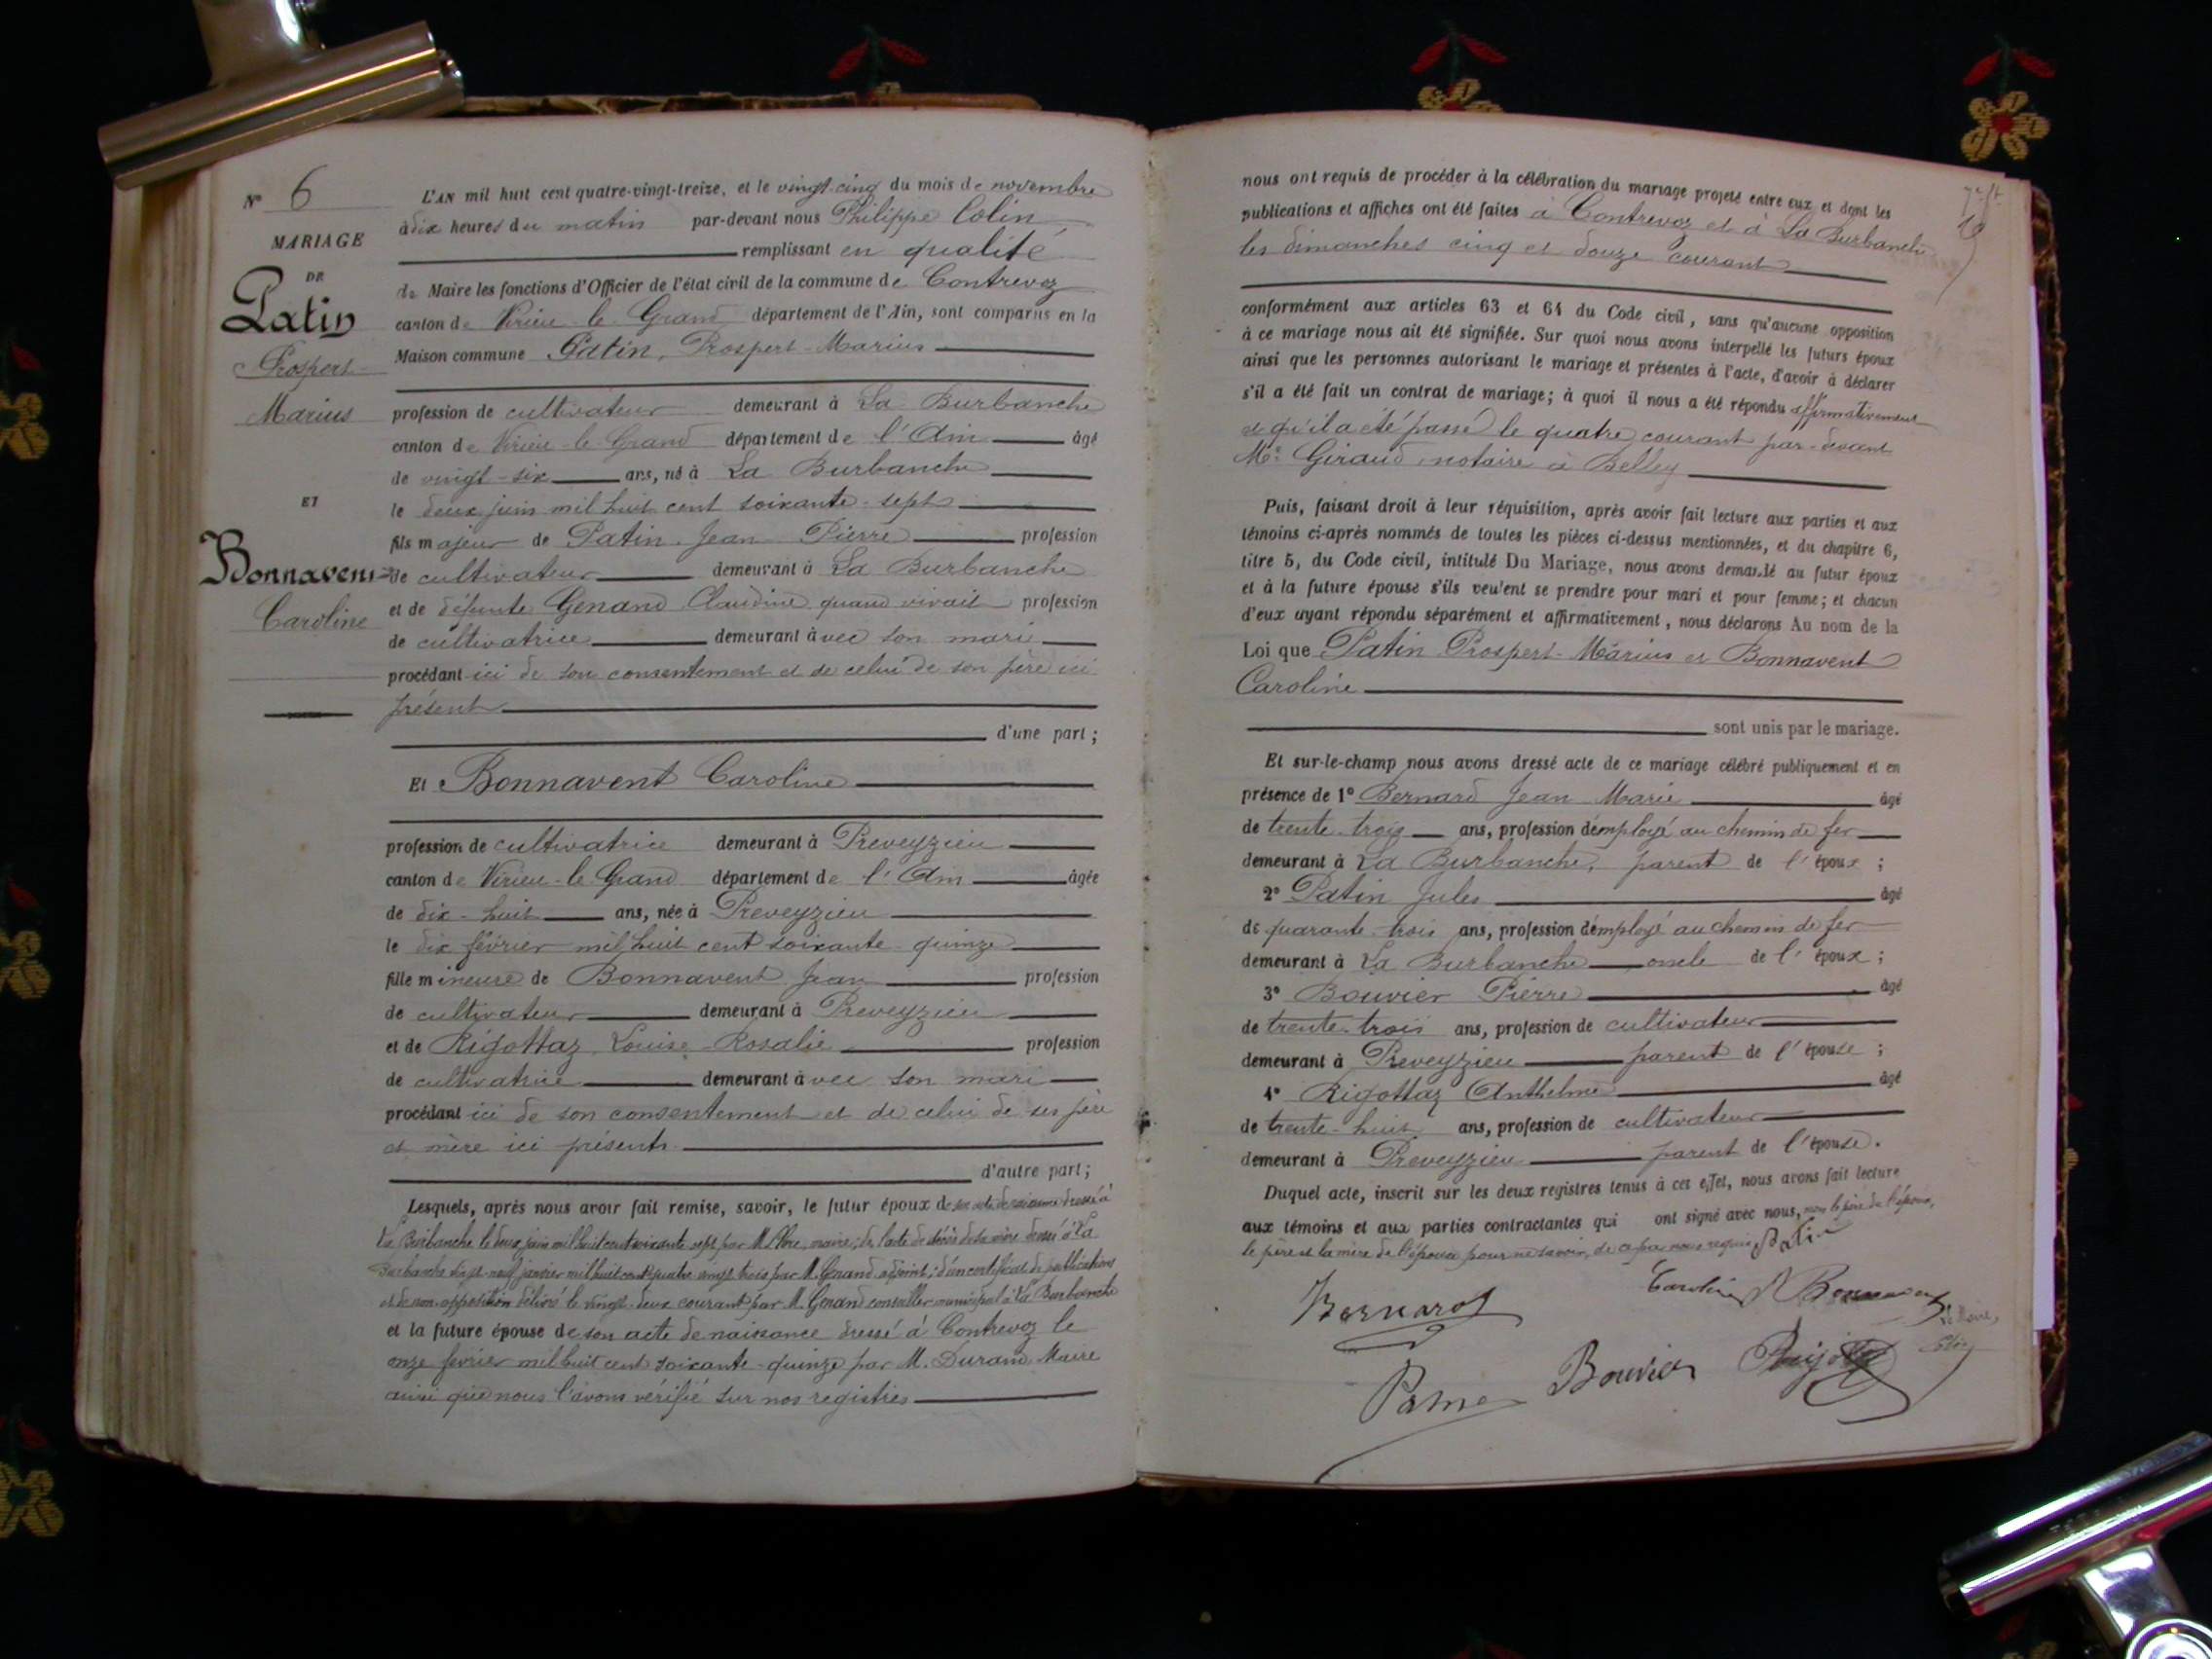 N° 6
MARIAGE
DE
Patin
Prospert
Marius
ET
Bonnavent
Caroline
L'AN mil huit cent quatre-vingt-treize, et le vingt-cinq du mois de novembre
à dix heures du matin par-devant nous Philippe Colin
remplissant en qualité
de Maire les fonctions d'Officier de l'état civil de la commune de Contrevoz
canton de Virieu-le-Grand département de l'Ain, sont comparus en la
Maison commune Patin, Prospert-Marius
profession de cultivateur demeurant à La Burbanche
canton de Virieu-le-Grand département de l'Ain âgé
de vingt-six ans, né à La Burbanche
le deux juin mil huit cent soixante-sept
fils majeur de Patin Jean Pierre profession
de cultivateur demeurant à La Burbanche
et de défunte Genand Claudine quand vivait profession
de cultivatrice demeurant avec son mari
procédant ici de son consentement et de celui de son père ici
présent
d'une part;
Et Bonnavent Caroline
profession de cultivatrice demeurant à Preveyzieu
canton de Virieu-le-Grand département de l'Ain âgée
de dix-huit ans, née à Preveyzieu
le dix février mil huit cent soixante-quinze
fille mineure de Bonnavent Jean profession
de cultivateur demeurant à Preveyzieu
et de Rigottaz Louise-Rosalie profession
de cultivatrice demeurant avec son mari
procédant ici de son consentement et de celui de ses père
et mère ici présents
d'autre part;
Lesquels, après nous avoir fait remise, savoir, le futur époux de son acte de naissance dressé à
La Burbanche le deux juin mil huit cent soixante sept par M. maire; de l'acte de décès de sa mère dressé à La
Burbanche le janvier mil huit cent quatre vingt trois par M. Genand adjoint; d'un certificat de publications
et de non-opposition délivré le vingt-deux courant par M. Genand conseiller municipal à La Burbanche
et la future épouse de son acte de naissance dressé à Contrevoz le
onze février mil huit cent soixante-quinze par M. Durand, Maire
ainsi que nous l'avons vérifié sur nos registres
19
nous ont requis de procéder à la célébration du mariage projeté entre eux et dont les
publications et affiches ont été faites à Contrevoz et à La Burbanche
les dimanches cinq et douze courant
conformément aux articles 63 et 64 du Code civil, sans qu'aucune opposition
à ce mariage nous ait été signifiée. Sur quoi nous avons interpellé les futurs époux
ainsi que les personnes autorisant le mariage et présentes à l'acte, d'avoir à déclarer
s'il a été fait un contrat de mariage; à quoi il nous a été répondu affirmativement
et qu'il a été passé le quatre courant par-devant
Me Giraud, notaire à Belley
Puis, faisant droit à leur réquisition, après avoir fait lecture aux parties et aux
témoins ci-après nommés de toutes les pièces ci-dessus mentionnées, et du chapitre 6,
titre 5, du Code civil, intitulé Du Mariage, nous avons demandé au futur époux
et à la future épouse s'ils veulent se prendre pour mari et pour femme; et chacun
d'eux ayant répondu séparément et affirmativement, nous déclarons Au nom de la
Loi que Patin Prospert-Marius et Bonnavent
Caroline
sont unis par le mariage.
Et sur-le-champ nous avons dressé acte de ce mariage célébré publiquement et en
présence de 1° Bernard Jean Marie âgé
de trente-trois ans, profession d'employé au chemin de fer
demeurant à La Burbanche, parent de l'époux;
2° Patin Jules âgé
de quarante-trois ans, profession d'employé au chemin de fer
demeurant à La Burbanche oncle de l'époux;
3° Bouvier Pierre âgé
de trente-trois ans, profession de cultivateur
demeurant à Preveyzieu parent de l'épouse;
4° Rigottaz Anthelme âgé
de trente-huit ans, profession de cultivateur
demeurant à Preveyzieu parent de l'épouse.
Duquel acte, inscrit sur les deux registres tenus à cet effet, nous avons fait lecture
aux témoins et aux parties contractantes qui ont signé avec nous, non le père de l'époux,
le père et la mère de l'épouse pour ne savoir, de ce par nous requis Patin
Caroline Bonnavent
Bernard
Le Maire,
Colin
Bouvier